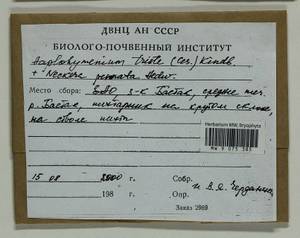 ДВНЦ АН СССР
БИОЛОГО-ПОЧВЕННЫЙ ИНСТИТУТ
Haplohymenium triste (Ces.) Kindb.
+ Neckera pennata Hedw.
Место сбора: ЕАО, з-к Бастак, среднее теч.
р. Бастак, пихтарник на крутом склоне,
на стволе пихты
Herbarium MW, Bryophyta
MW 9 075 361
15 08 2000 г.
198 г. Опр.
Заказ 2969